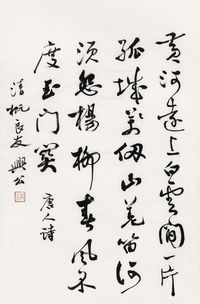 黄河遠上白雲間一片
孤城萬仞山羌笛何
須怨楊柳春風不
度玉門関
唐人詩
良友 興公